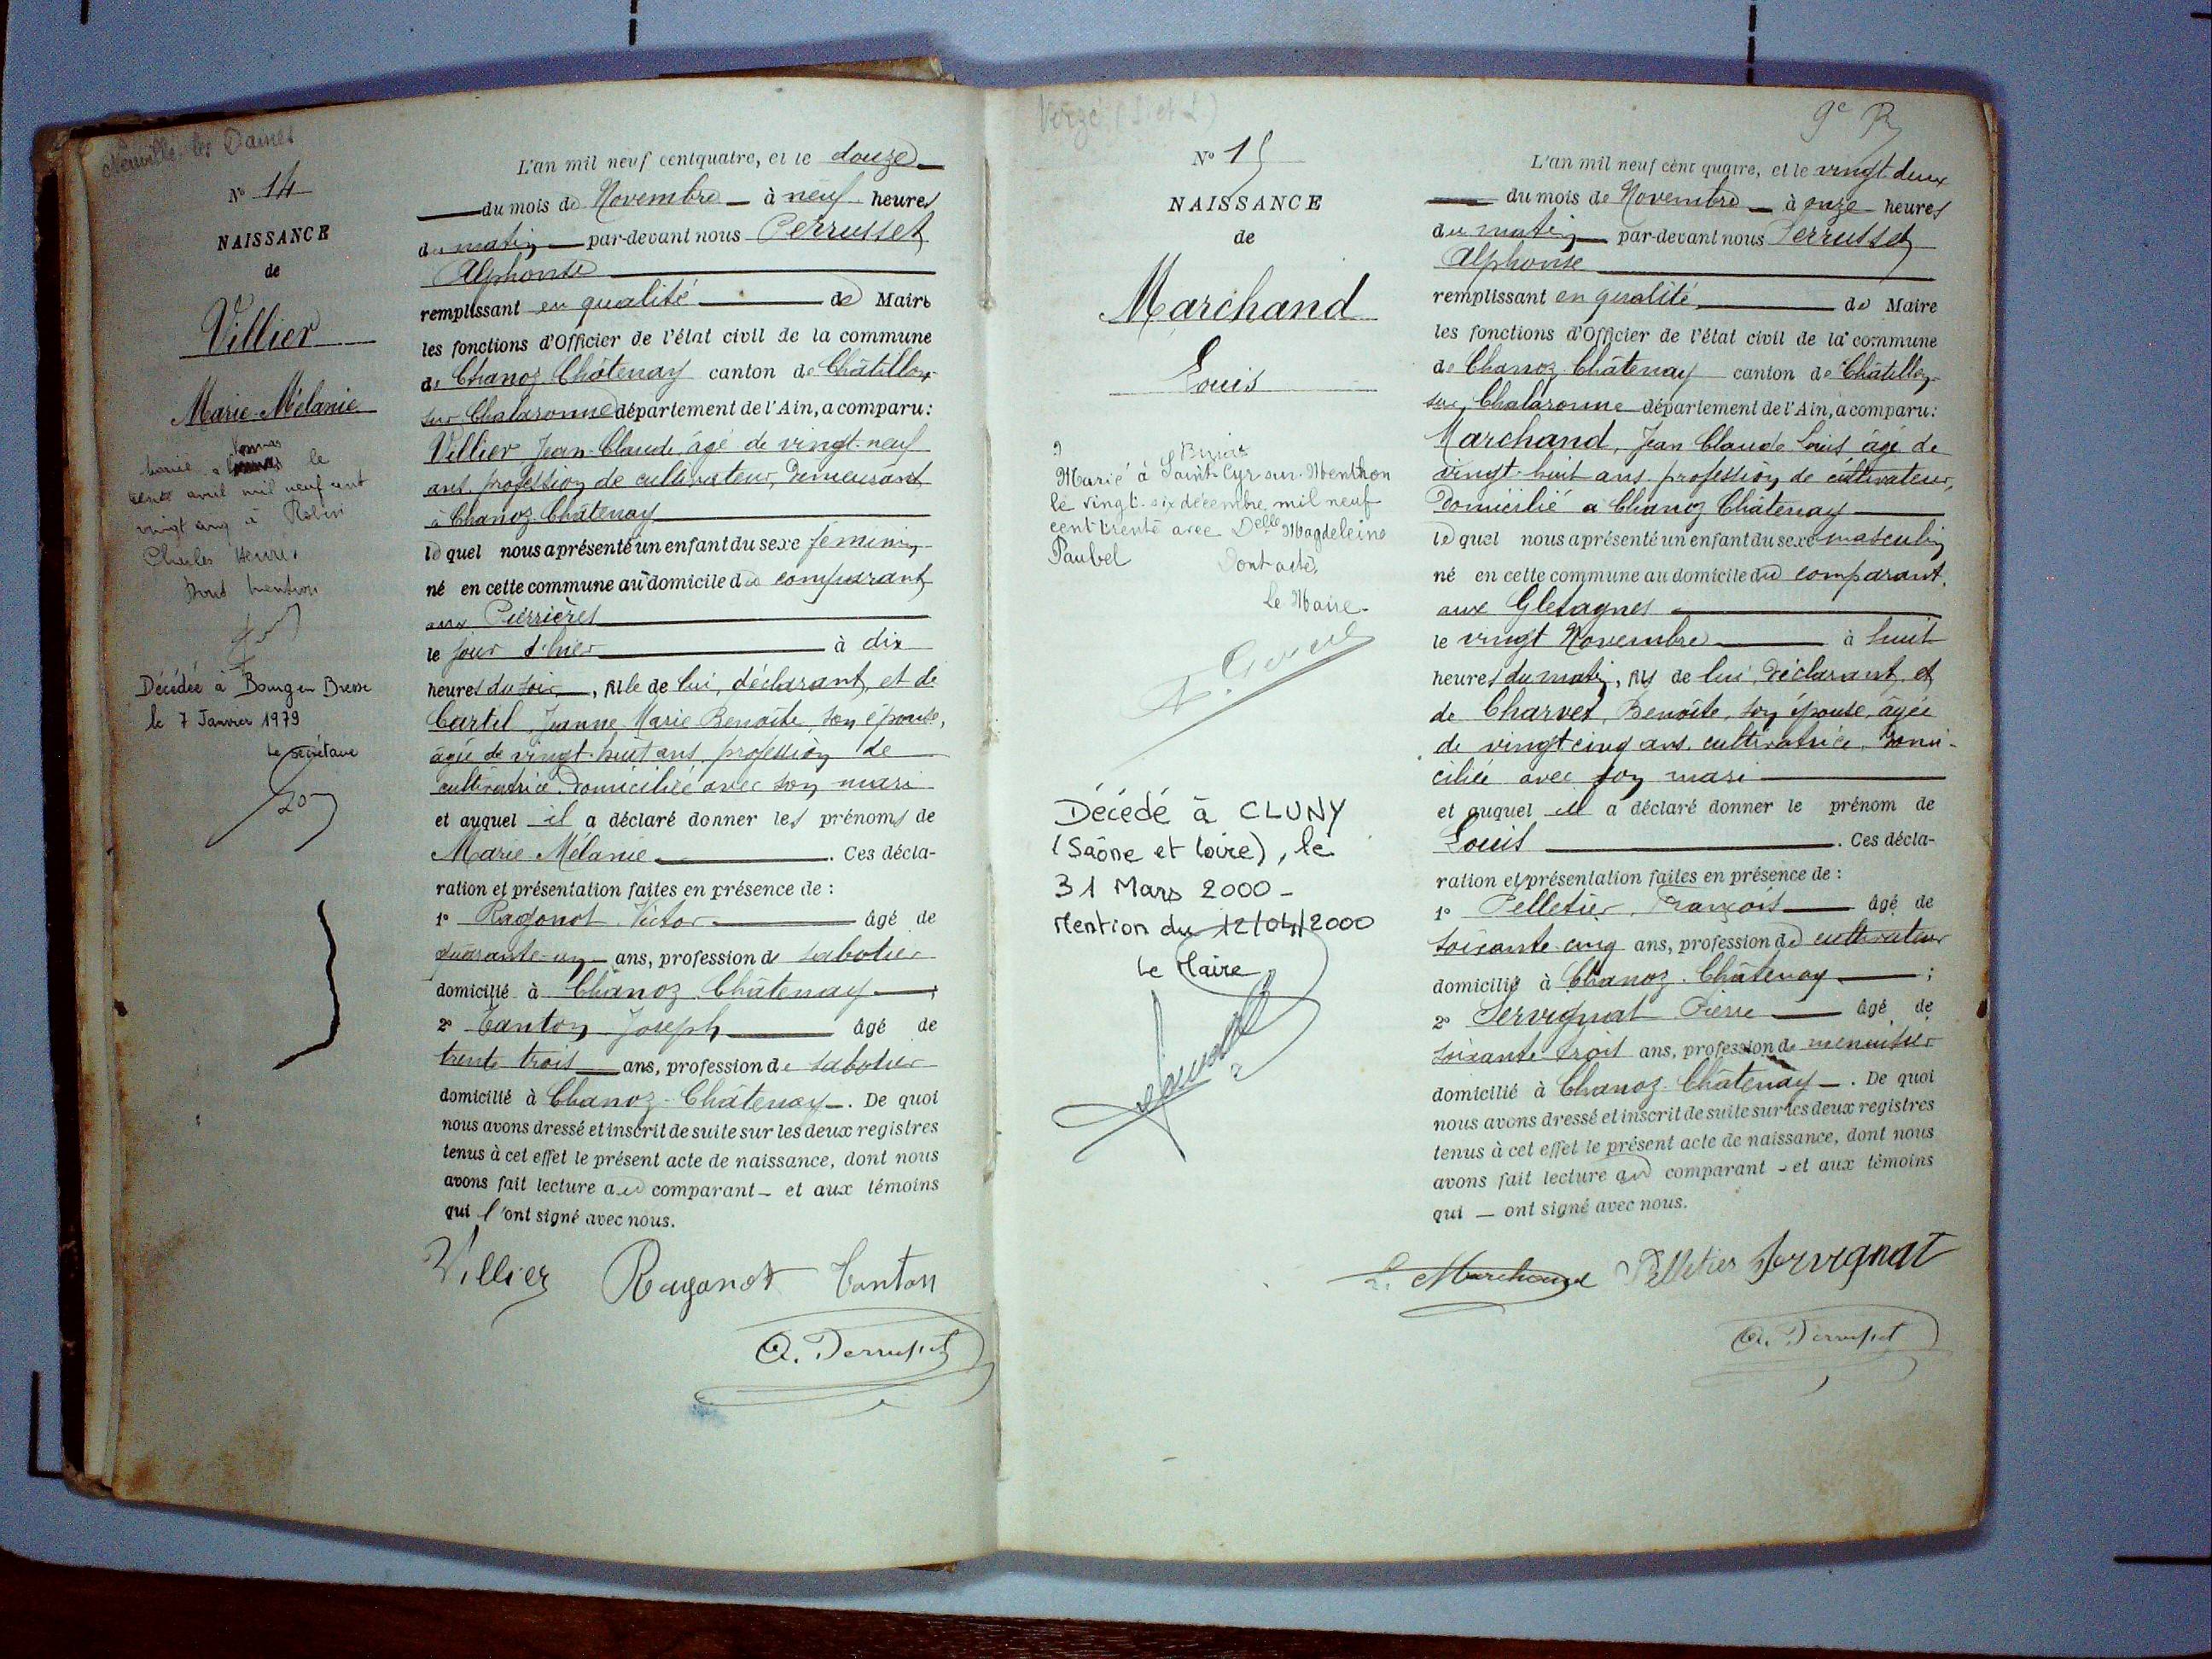 Neuville les Dames
N° 14
NAISSANCE
de
Villier
Marie-Mélanie
Vonnas
le
avril mil neuf cent
vingt cinq à Robin
Charles Henri
Dont mention
Décédée à Bourg en Bresse
le 7 Janvier 1979
Le secrétaire
L'an mil neuf cent quatre, et le douze
du mois de Novembre à neuf heures
du matin par-devant nous Perrusset
Alphonse
remplissant en qualité de Maire
les fonctions d'Officier de l'état civil de la commune
de Chanoz Châtenay canton de Châtillon
sur Chalaronne département de l'Ain, a comparu :
Villier Jean-Claude, âgé de vingt-neuf
ans, profession de cultivateur, demeurant
à Chanoz Châtenay
lequel nous a présenté un enfant du sexe féminin
né en cette commune au domicile du comparant
aux Perrières
le jour d'hier à dix
heures du soir, fille de lui, déclarant, et de
Cartel Jeanne Marie Benoîte, son épouse,
âgée de vingt-huit ans, profession de
cultivatrice, domiciliée avec son mari
et auquel il a déclaré donner les prénoms de
Marie Mélanie . Ces décla-
ration et présentation faites en présence de :
1° Ragonot Victor âgé de
quarante-un ans, profession de sabotier
domicilié à Chanoz Châtenay ;
2° Tanton Joseph âgé de
trente trois ans, profession de sabotier
domicilié à Chanoz-Châtenay . De quoi
nous avons dressé et inscrit de suite sur les deux registres
tenus à cet effet le présent acte de naissance, dont nous
avons fait lecture au comparant et aux témoins
qui l'ont signé avec nous.
Villier Ragonot Tanton
A. Perrusset
Verzé (S. et L)
N° 15
NAISSANCE
de
Marchand
Louis
Marié à Saint-Cyr-sur-Menthon
le vingt-six décembre mil neuf
cent trente avec Delle Magdeleine
Paubel Dont acte,
Le Maire
Décédé à CLUNY
(Saône et Loire), le
31 Mars 2000 -
Mention du 12/04/2000
Le Maire
9e R
L'an mil neuf cent quatre, et le vingt-deux
du mois de Novembre à onze heures
du matin par-devant nous Perrusset
Alphonse
remplissant en qualité de Maire
les fonctions d'Officier de l'état civil de la commune
de Chanoz Châtenay canton de Châtillon
sur Chalaronne département de l'Ain, a comparu :
Marchand, Jean Claude Louis, âgé de
vingt-huit ans, profession de cultivateur,
domicilié à Chanoz Châtenay
lequel nous a présenté un enfant du sexe masculin
né en cette commune au domicile du comparant,
aux Gletagnes
le vingt Novembre à huit
heures du matin, fils de lui, déclarant, et
de Charvet, Benoîte, son épouse, âgée
de vingt cinq ans, cultivatrice, domi-
ciliée avec son mari
et auquel il a déclaré donner le prénom de
Louis . Ces décla-
ration et présentation faites en présence de :
1° Pelletier, François âgé de
soixante-cinq ans, profession de cultivateur
domicilié à Chanoz-Châtenay ;
2° Servignat Pierre âgé de
soixante-trois ans, profession de menuisier
domicilié à Chanoz-Châtenay . De quoi
nous avons dressé et inscrit de suite sur les deux registres
tenus à cet effet le présent acte de naissance, dont nous
avons fait lecture au comparant et aux témoins
qui ont signé avec nous.
L. Marchand Pelletier Servignat
A. Perrusset